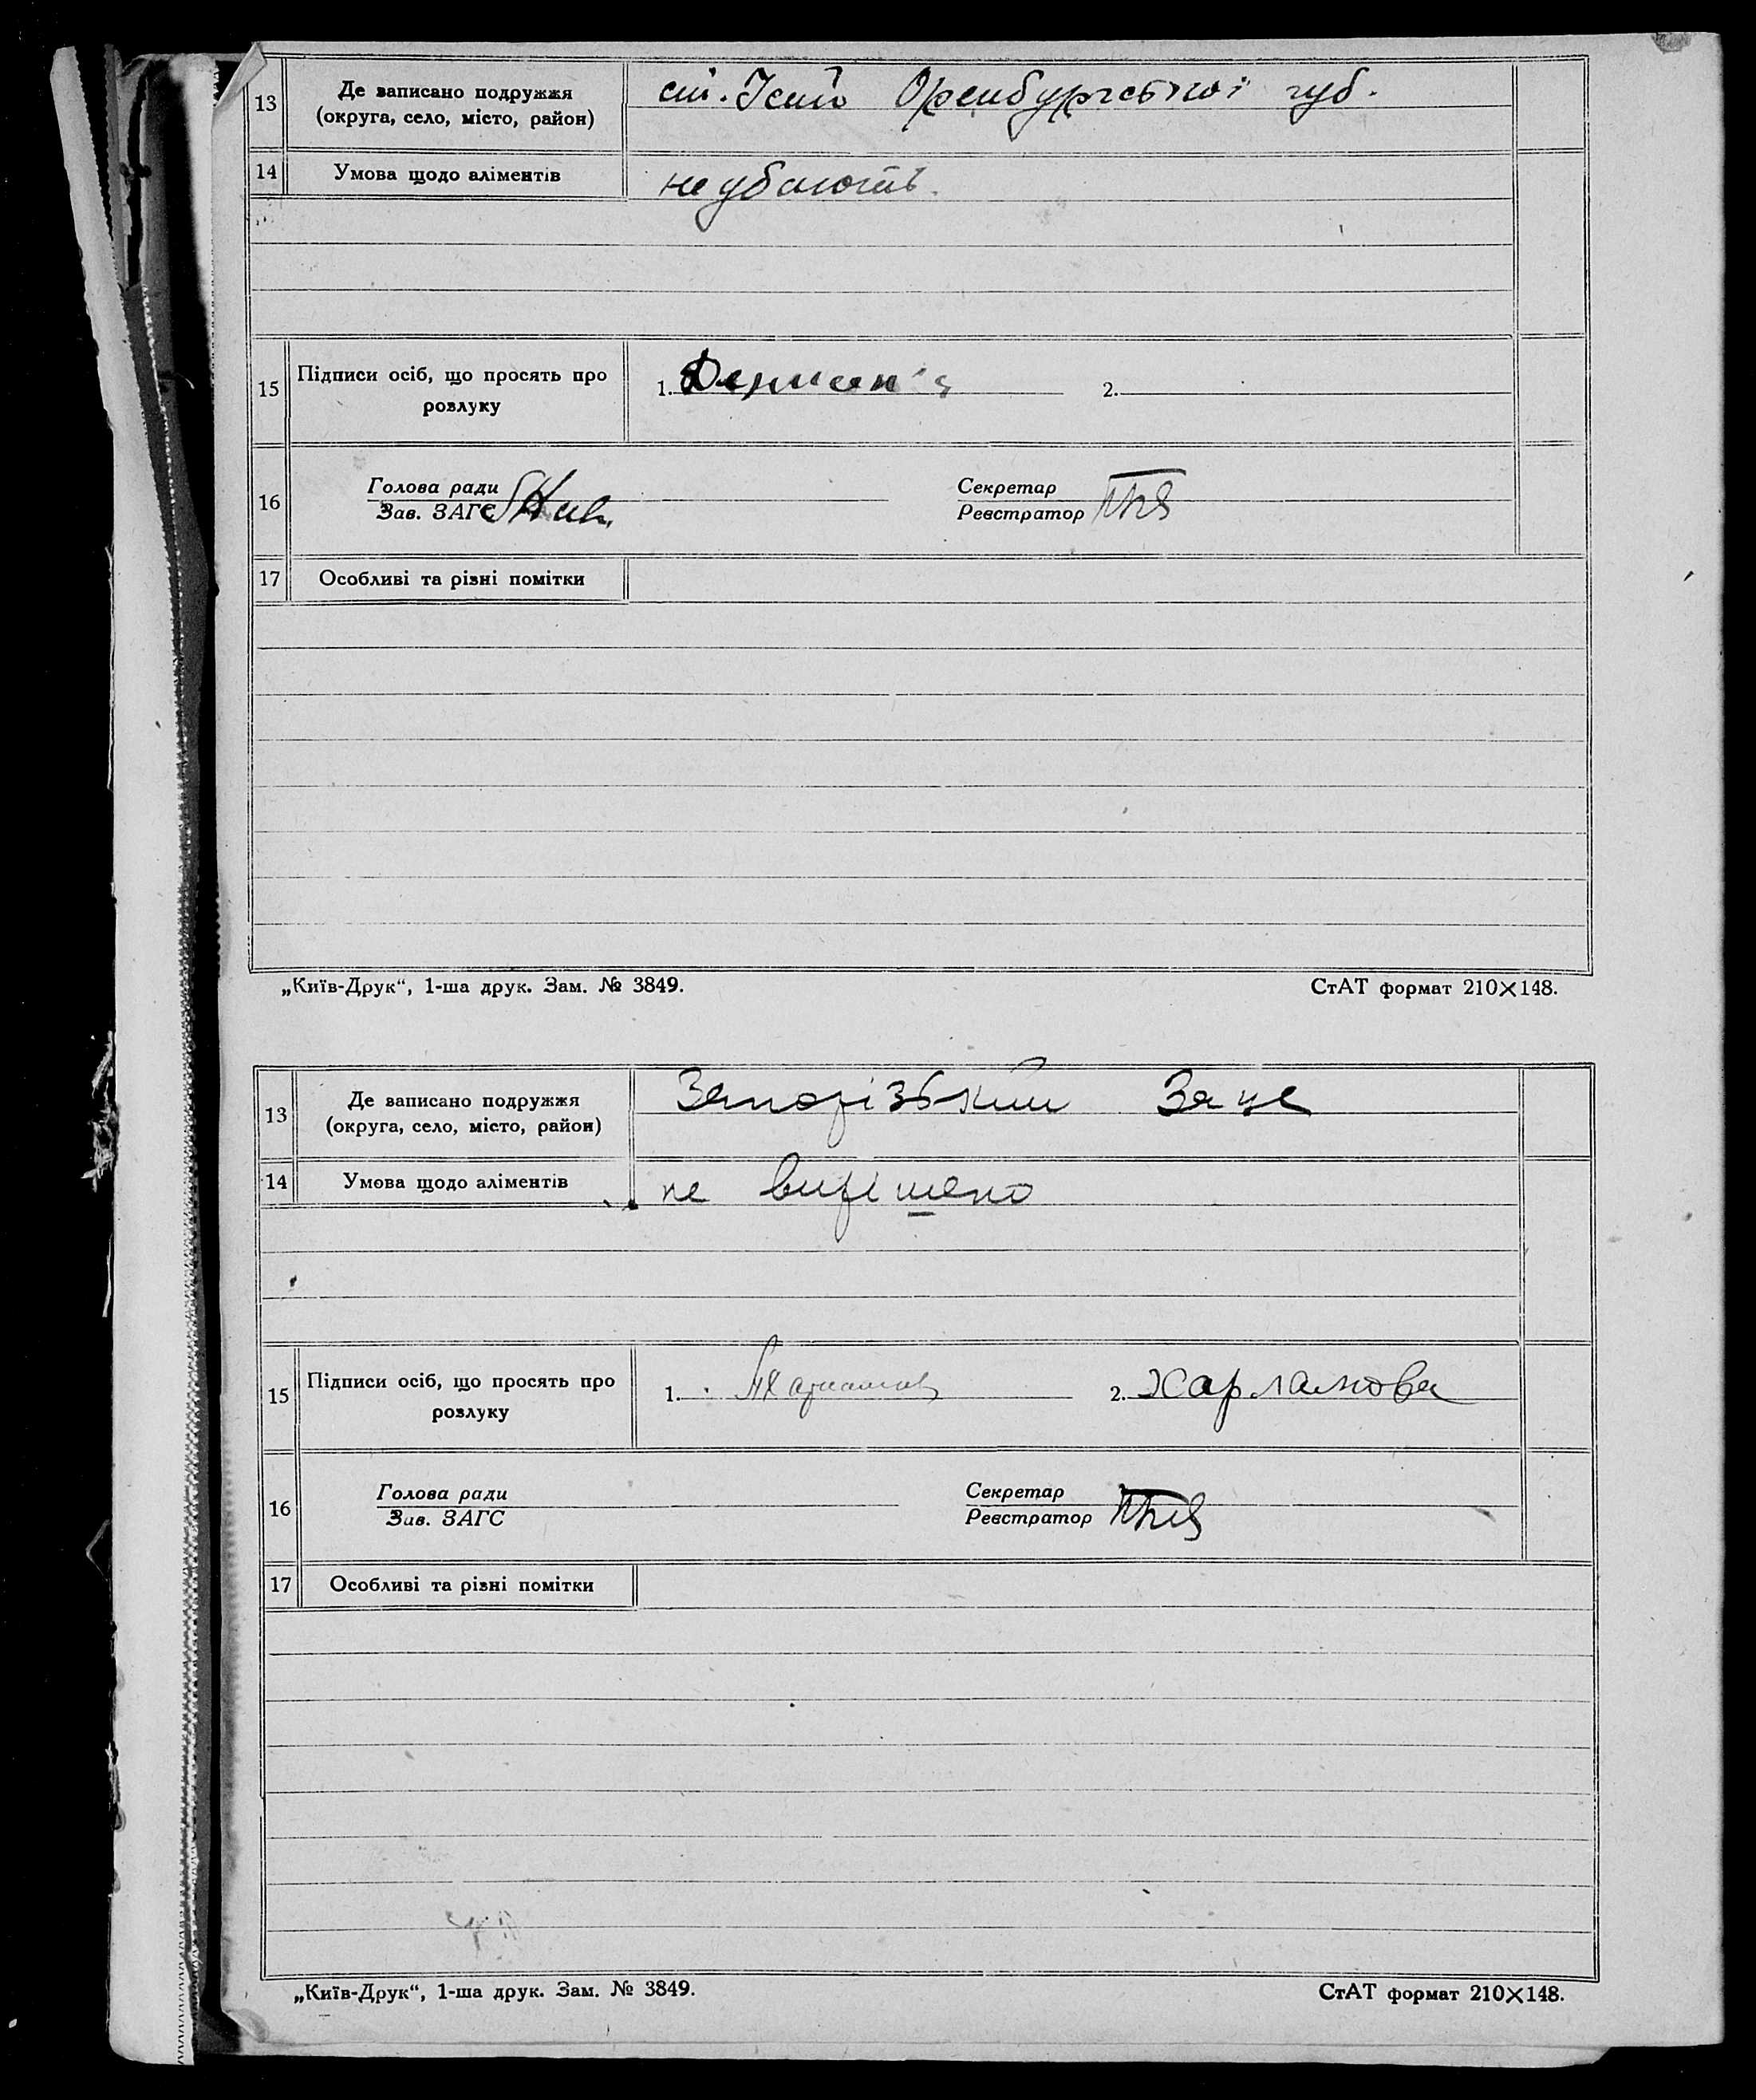 13
Де записано подружжя
(округа, село, місто, район)
ст. Оренбургської губ.
14
Умова щодо аліментів
15
Підписи осіб, що просять про
розлуку
1.
2.
16
Голова ради
Зав. ЗАГС
Секретар
Реєстратор
17
Особливі та різні помітки
„Київ-Друк“, 1-ша друк. Зам. № 3849.
СтАТ формат 210×148.
13
Де записано подружжя
(округа, село, місто, район)
14
Умова щодо аліментів
не вирішено
15
Підписи осіб, що просять про
розлуку
1.
2. Харламова
16
Голова ради
Зав. ЗАГС
Секретар
Реєстратор
17
Особливі та різні помітки
„Київ-Друк“, 1-ша друк. Зам. № 3849.
СтАТ формат 210×148.